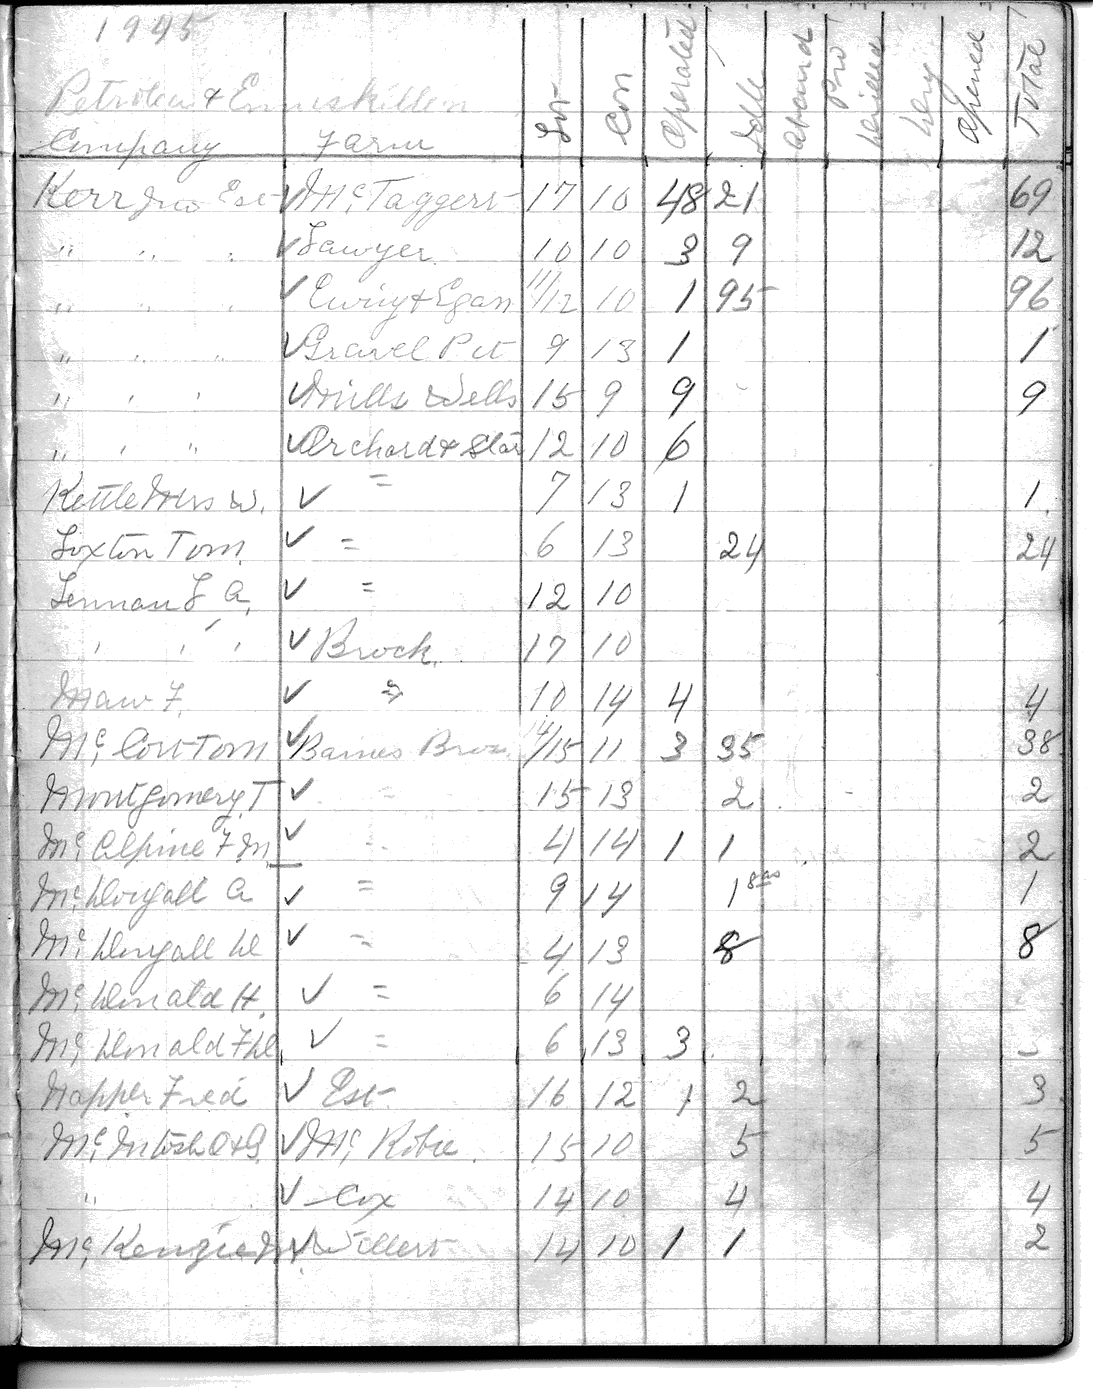 1945
Petrolea & Enniskillen
Company Farm Lot Con Operated Idle Aband Pro Drilled Dry Opened Total
Kerr Jno Est ✓ Mc, Taggert 17 10 48 21 69
" " " ✓ Sawyer 10 10 3 9 12
" " " ✓ Ewing & Egan 11/12 10 1 95 96
" " " ✓ Gravel Pit 9 13 1 1
" " " ✓ Mills Wells 15 9 9 9
" " " ✓ Orchard & 12 10 6
Kettle Mrs W. ✓ = 7 13 1 1
Loxton Tom ✓ = 6 13 24 24
Lennan J A, ✓ = 12 10
" " " ✓ Brock 17 10
Maw F. ✓ = 10 14 4 4
Mc, Cort Tom ✓ Barnes Bros. 14/15 11 3 35 38
Montgomery, T ✓ = 15 13 2 2
Mc, Alpine F. M, ✓ = 4 14 1 1 2
Mc, Dougall A ✓ = 9 14 1 gas 1
Mc, Dougall D ✓ = 4 13 8 8
Mc, Donald H. ✓ = 6 14
Mc, Donald F D ✓ = 6 13 3
Napper Fred ✓ Est. 16 12 1 2 3
Mc, Intosh O & G. ✓ Mc, Robie 15 10 5 5
" ✓ Cox 14 10 4 4
Mc, Kenzie ✓ Willert 14 10 1 1 2